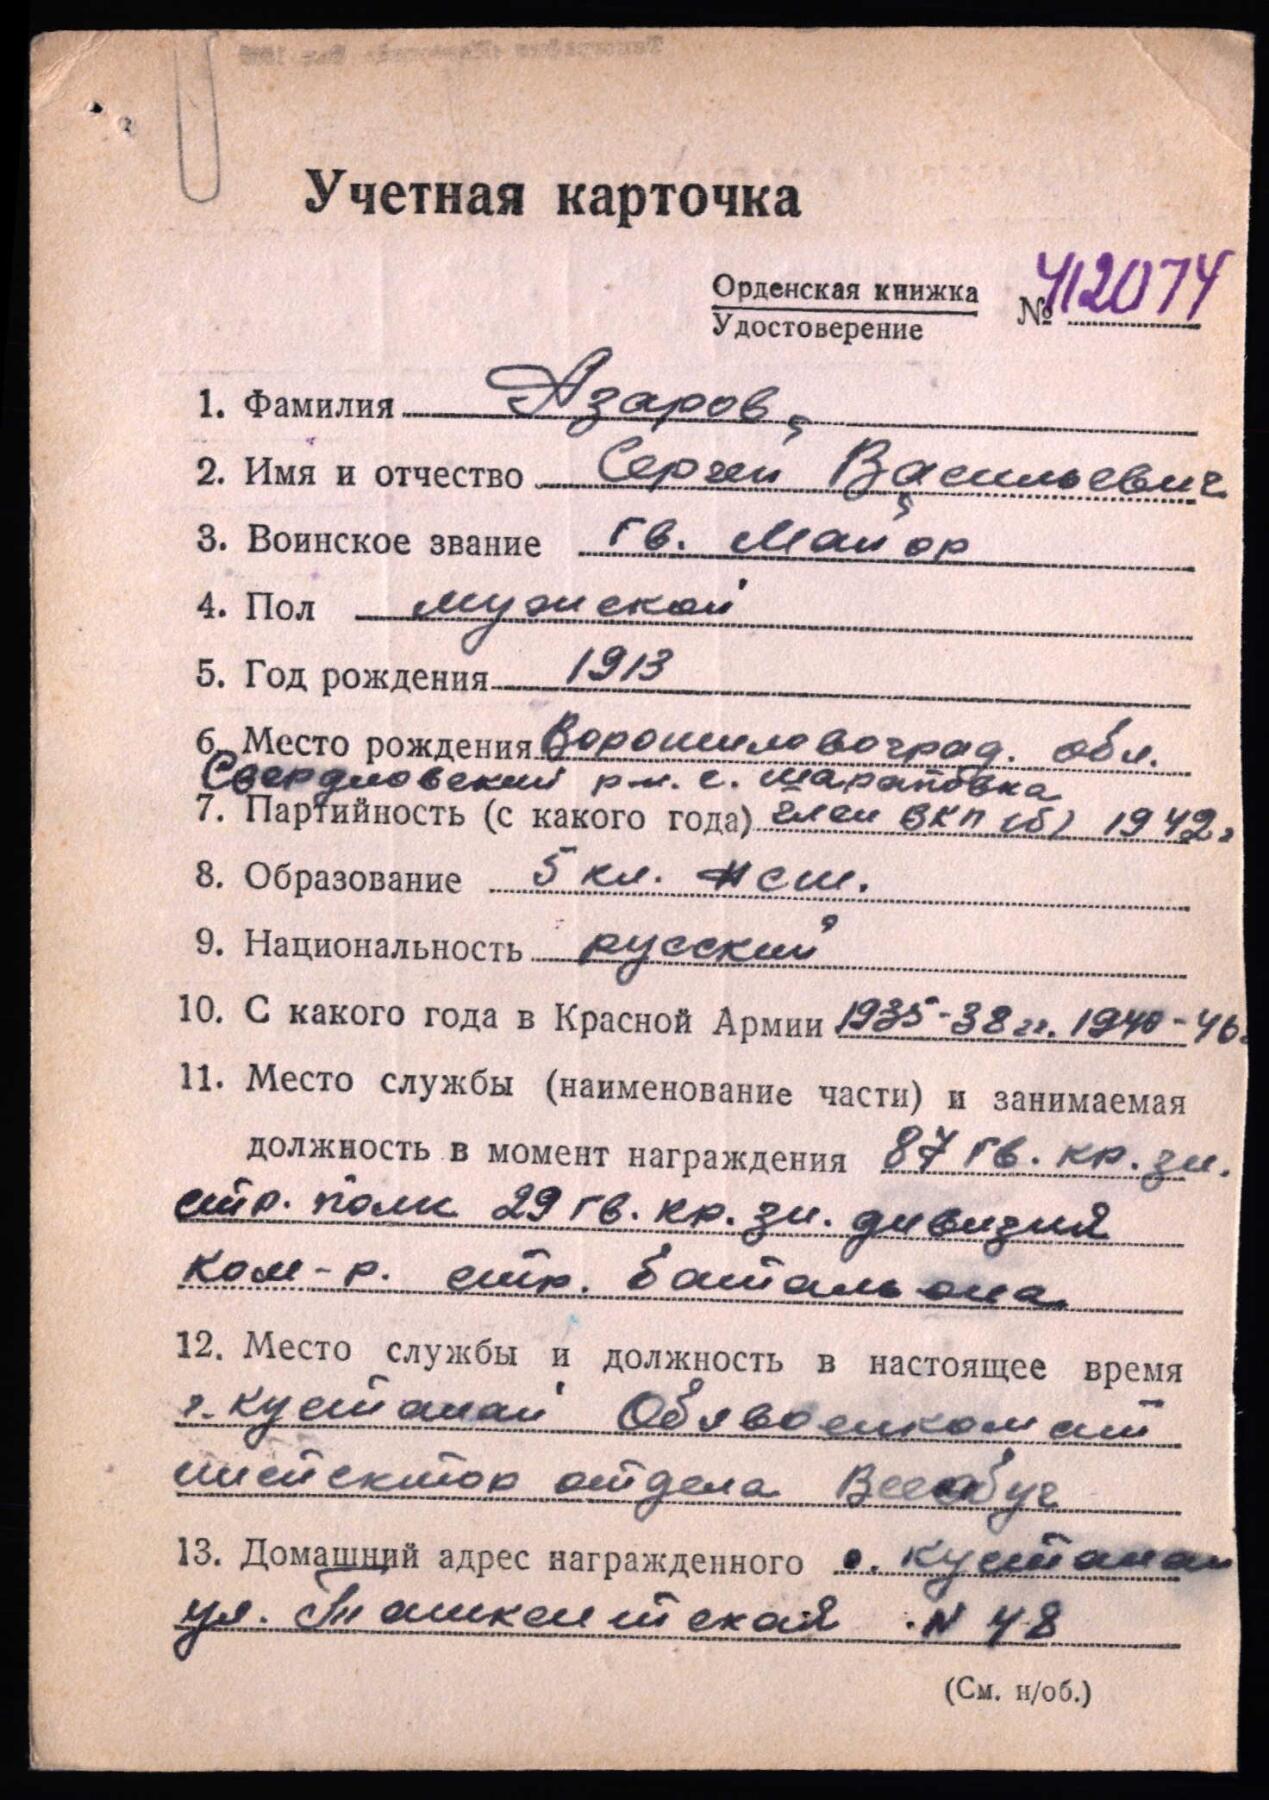 Учетная карточка
Орденская книжка № 412074
Удостоверение
1. Фамилия Азаров
2. Имя и отчество Сергей Васильевич
3. Воинское звание гв. Майор
4. Пол мужской
5. Год рождения 1913
6. Место рождения Ворошиловоград. обл.
Свердловский р-н. с. Шараповка
7. Партийность (с какого года) член ВКП(б) 1942г
8. Образование 5 кл. нсш.
9. Национальность русский
10. С какого года в Красной Армии 1935-38 гг. 1940-46г
11. Место службы (наименование части) и занимаемая
должность в момент награждения 87 гв. кр. зн.
стр. полк 29 гв. кр. зн. дивизия
ком-р. стр. батальона
12. Место службы и должность в настоящее время
г. Кустанай Облвоенкомат
инспектор отдела Всеобуч
13. Домашний адрес награжденного г. Кустанай
ул. Ташкентская N 48
(См. н/об.)